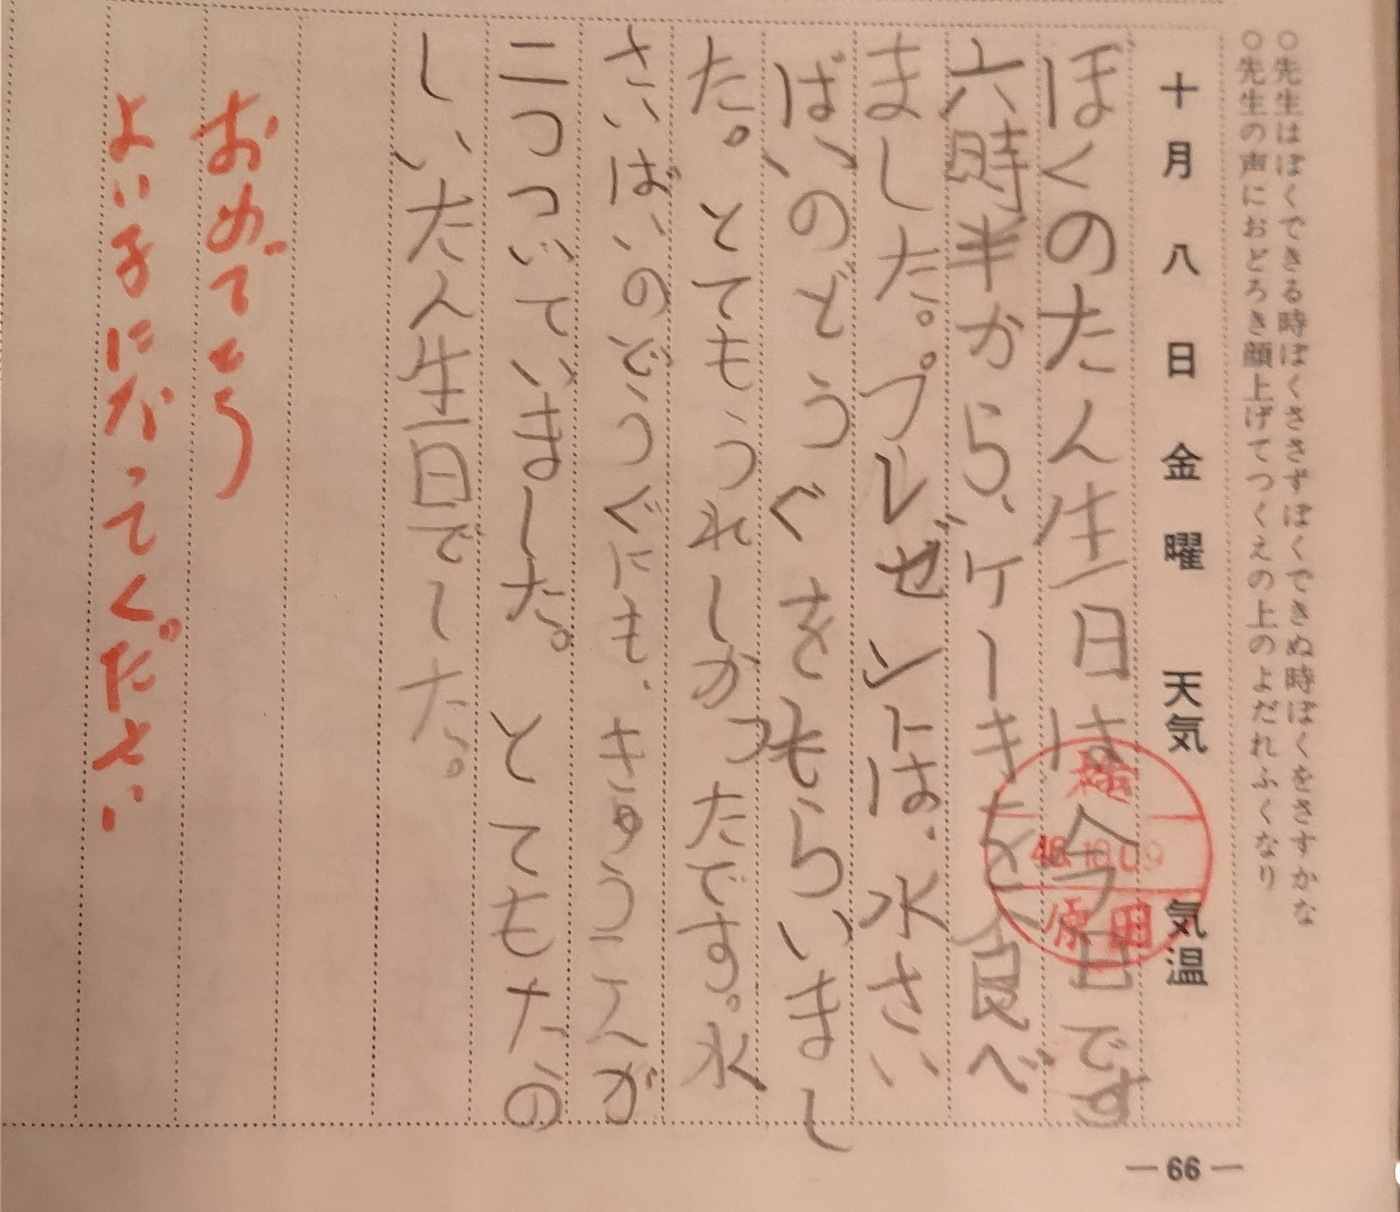 ○先生はぼくできる時ぼくささずぼくできぬ時ぼくをさすかな
○先生の声におどろき顔上げてつくえの上のよだれふくなり
十月八日金曜 天気 気温
ぼくのたん生日は今日です
六時半から、ケーキを食べ
ました。プレゼントは、水さい
ばいのどうぐをもらいまし
た。とてもうれしかったです。水
さいばいのどうぐにも、きゅうこんが
二つついていました。とてもたの
しいたん生日でした。
おめでとう
よい子になってください
48.10.09
原田
—66—